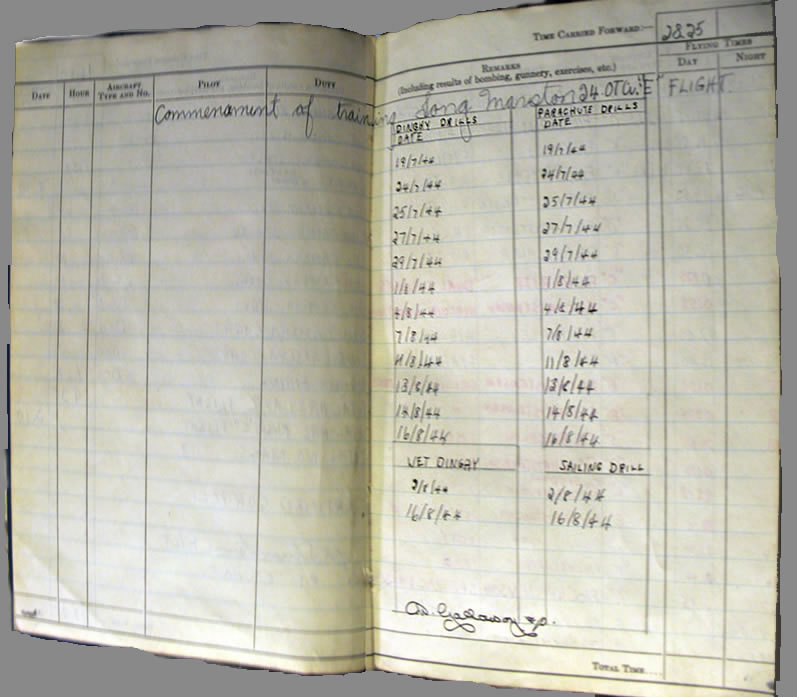 TIME CARRIED FORWARD:— 2825
DATE HOUR AIRCRAFT TYPE AND NO. PILOT DUTY
REMARKS
(Including results of bombing, gunnery, exercises, etc.)
FLYING TIMES
DAY NIGHT
Commenament of training Long Marston 24 OTCu. "E" FLIGHT.
DINGHY DRILLS PARACHUTE DRILLS
DATE DATE
19/7/44 19/7/44
24/7/44 24/7/44
25/7/44 25/7/44
27/7/44 27/7/44
29/7/44 29/7/44
1/8/44 1/8/44
4/8/44 4/8/44
7/8/44 7/8/44
11/8/44 11/8/44
13/8/44 13/8/44
14/8/44 14/8/44
16/8/44 16/8/44
WET DINGHY SAILING DRILL
2/8/44 2/8/44
16/8/44 16/8/44
Galloway
TOTAL TIME....